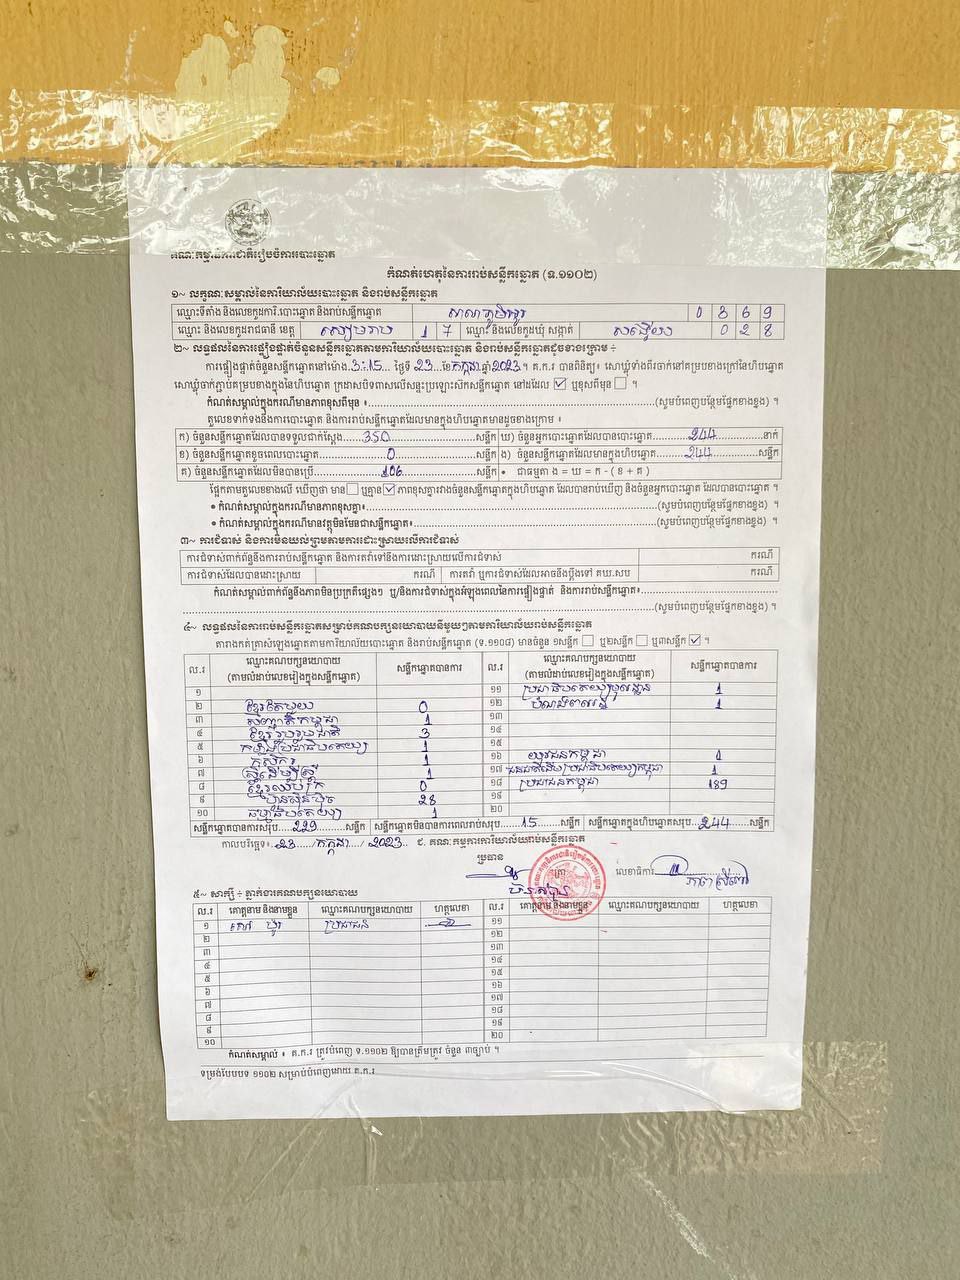 គណៈកម្មាធិការជាតិរៀបចំការបោះឆ្នោត
កំណត់ហេតុនៃការរាប់សន្លឹកឆ្នោត (ទ.១១០២)
១~ លក្ខណៈសម្គាល់នៃការិយាល័យបោះឆ្នោត និងរាប់សន្លឹកឆ្នោត
ឈ្មោះទីតាំង និងលេខកូដការិ.បោះឆ្នោត និងរាប់សន្លឹកឆ្នោត 0 8 6 9
ឈ្មោះ និងលេខកូដរាជធានី ខេត្ត សៀមរាប 1 7 ឈ្មោះ និងលេខកូដឃុំ សង្កាត់ 0 2 8
២~ លទ្ធផលនៃការផ្ទៀងផ្ទាត់ចំនួនសន្លឹកឆ្នោតតាមការិយាល័យបោះឆ្នោត និងរាប់សន្លឹកឆ្នោតដូចខាងក្រោម ÷
ការផ្ទៀងផ្ទាត់ចំនួនសន្លឹកឆ្នោតនៅម៉ោង 3:15 ថ្ងៃទី 23 ខែ កក្កដា ឆ្នាំ 2023 ។ គ.ក.រ បានពិនិត្យ៖ សោឃ្លុំទាំងពីរចាក់នៅគម្របខាងក្រៅនៃហិបឆ្នោត
សោឃ្លុំចាក់ភ្ជាប់គម្របខាងក្នុងនៃហិបឆ្នោត ក្រដាសបិទពាសលើសន្ទះប្រឡោះសិកសន្លឹកឆ្នោត នៅដដែល ☑ ឬខុសពីមុន ☐ ។
កំណត់សម្គាល់ក្នុងករណីមានភាពខុសពីមុន ៖ (សូមបំពេញបន្ថែមផ្នែកខាងខ្នង) ។
តួលេខទាក់ទងនឹងការបោះឆ្នោត និងការរាប់សន្លឹកឆ្នោតដែលមានក្នុងហិបឆ្នោតមានដូចខាងក្រោម ៖
ក) ចំនួនសន្លឹកឆ្នោតដែលបានទទួលជាក់ស្តែង 350 សន្លឹក ឃ) ចំនួនអ្នកបោះឆ្នោតដែលបានបោះឆ្នោត 244 នាក់
ខ) ចំនួនសន្លឹកឆ្នោតខូចពេលបោះឆ្នោត 0 សន្លឹក ង) ចំនួនសន្លឹកឆ្នោតដែលមានក្នុងហិបឆ្នោត 244 សន្លឹក
គ) ចំនួនសន្លឹកឆ្នោតដែលមិនបានប្រើ 106 សន្លឹក • ជាធម្មតា ង = ឃ = ក - ( ខ + គ )
ផ្អែកតាមតួលេខខាងលើ ឃើញថា មាន ☐ ឬគ្មាន ☑ ភាពខុសគ្នារវាងចំនួនសន្លឹកឆ្នោតក្នុងហិបឆ្នោត ដែលបានរាប់ឃើញ និងចំនួនអ្នកបោះឆ្នោត ដែលបានបោះឆ្នោត ។
• កំណត់សម្គាល់ក្នុងករណីមានភាពខុសគ្នា៖ (សូមបំពេញបន្ថែមផ្នែកខាងខ្នង) ។
• កំណត់សម្គាល់ក្នុងករណីមានវត្ថុមិនមែនជាសន្លឹកឆ្នោត៖ (សូមបំពេញបន្ថែមផ្នែកខាងខ្នង) ។
៣~ ការជំទាស់ និងការមិនយល់ព្រមតាមការដោះស្រាយលើការជំទាស់
ការជំទាស់ពាក់ព័ន្ធនឹងការរាប់សន្លឹកឆ្នោត និងការតវ៉ាទៅនឹងការដោះស្រាយលើការជំទាស់ ករណី
ការជំទាស់ដែលបានដោះស្រាយ ករណី ការតវ៉ា ឬការជំទាស់ដែលអាចនឹងប្តឹងទៅ គឃ.សប ករណី
កំណត់សម្គាល់ពាក់ព័ន្ធនឹងភាពមិនប្រក្រតីផ្សេងៗ ឬ/និងការជំទាស់ក្នុងអំឡុងពេលនៃការផ្ទៀងផ្ទាត់ និងការរាប់សន្លឹកឆ្នោត៖
(សូមបំពេញបន្ថែមផ្នែកខាងខ្នង) ។
៤~ លទ្ធផលនៃការរាប់សន្លឹកឆ្នោតសម្រាប់គណបក្សនយោបាយនីមួយៗតាមការិយាល័យរាប់សន្លឹកឆ្នោត
តារាងកត់ត្រាសំឡេងឆ្នោតតាមការិយាល័យបោះឆ្នោត និងរាប់សន្លឹកឆ្នោត (ទ.១១០៨) មានចំនួន ១សន្លឹក ☐ ឬ២សន្លឹក ☐ ឬ៣សន្លឹក ☑ ។
ល.រ ឈ្មោះគណបក្សនយោបាយ (តាមលំដាប់លេខរៀងក្នុងសន្លឹកឆ្នោត) សន្លឹកឆ្នោតបានការ ល.រ ឈ្មោះគណបក្សនយោបាយ (តាមលំដាប់លេខរៀងក្នុងសន្លឹកឆ្នោត) សន្លឹកឆ្នោតបានការ
១ ១១ 1
២ ខ្មែរតែមួយ 0 ១២ 1
៣ 1 ១៣
៤ ខ្មែររួបរួមជាតិ 3 ១៤
៥ 1 ១៥
៦ កសិករ 1 ១៦ យុវជនកម្ពុជា 1
៧ ស្ត្រីដើម្បីស្ត្រី 1 ១៧ 1
៨ ខ្មែរឈប់ក្រ 0 ១៨ ប្រជាជនកម្ពុជា 189
៩ ហ៊្វុនស៊ិនប៉ិច 28 ១៩
១០ ធម្មាធិបតេយ្យ 1 ២០
សន្លឹកឆ្នោតបានការសរុប 229 សន្លឹក សន្លឹកឆ្នោតមិនបានការពេលរាប់សរុប 15 សន្លឹក សន្លឹកឆ្នោតក្នុងហិបឆ្នោតសរុប 244 សន្លឹក
កាលបរិច្ឆេទ៖ 23 / កក្កដា / 2023 ជ. គណៈកម្មការការិយាល័យរាប់សន្លឹកឆ្នោត
ប្រធាន ត្រា លេខាធិការ
៥~ សាក្សី ÷ ភ្នាក់ងារគណបក្សនយោបាយ
ល.រ គោត្តនាម និងនាមខ្លួន ឈ្មោះគណបក្សនយោបាយ ហត្ថលេខា ល.រ គោត្តនាម និងនាមខ្លួន ឈ្មោះគណបក្សនយោបាយ ហត្ថលេខា
១ ប្រជាជន ១១
២ ១២
៣ ១៣
៤ ១៤
៥ ១៥
៦ ១៦
៧ ១៧
៨ ១៨
៩ ១៩
១០ ២០
កំណត់សម្គាល់ ៖ គ.ក.រ ត្រូវបំពេញ ទ.១១០២ ឱ្យបានត្រឹមត្រូវ ចំនួន ៣ច្បាប់ ។
ទម្រង់បែបបទ ១១០២ សម្រាប់បំពេញដោយ គ.ក.រ